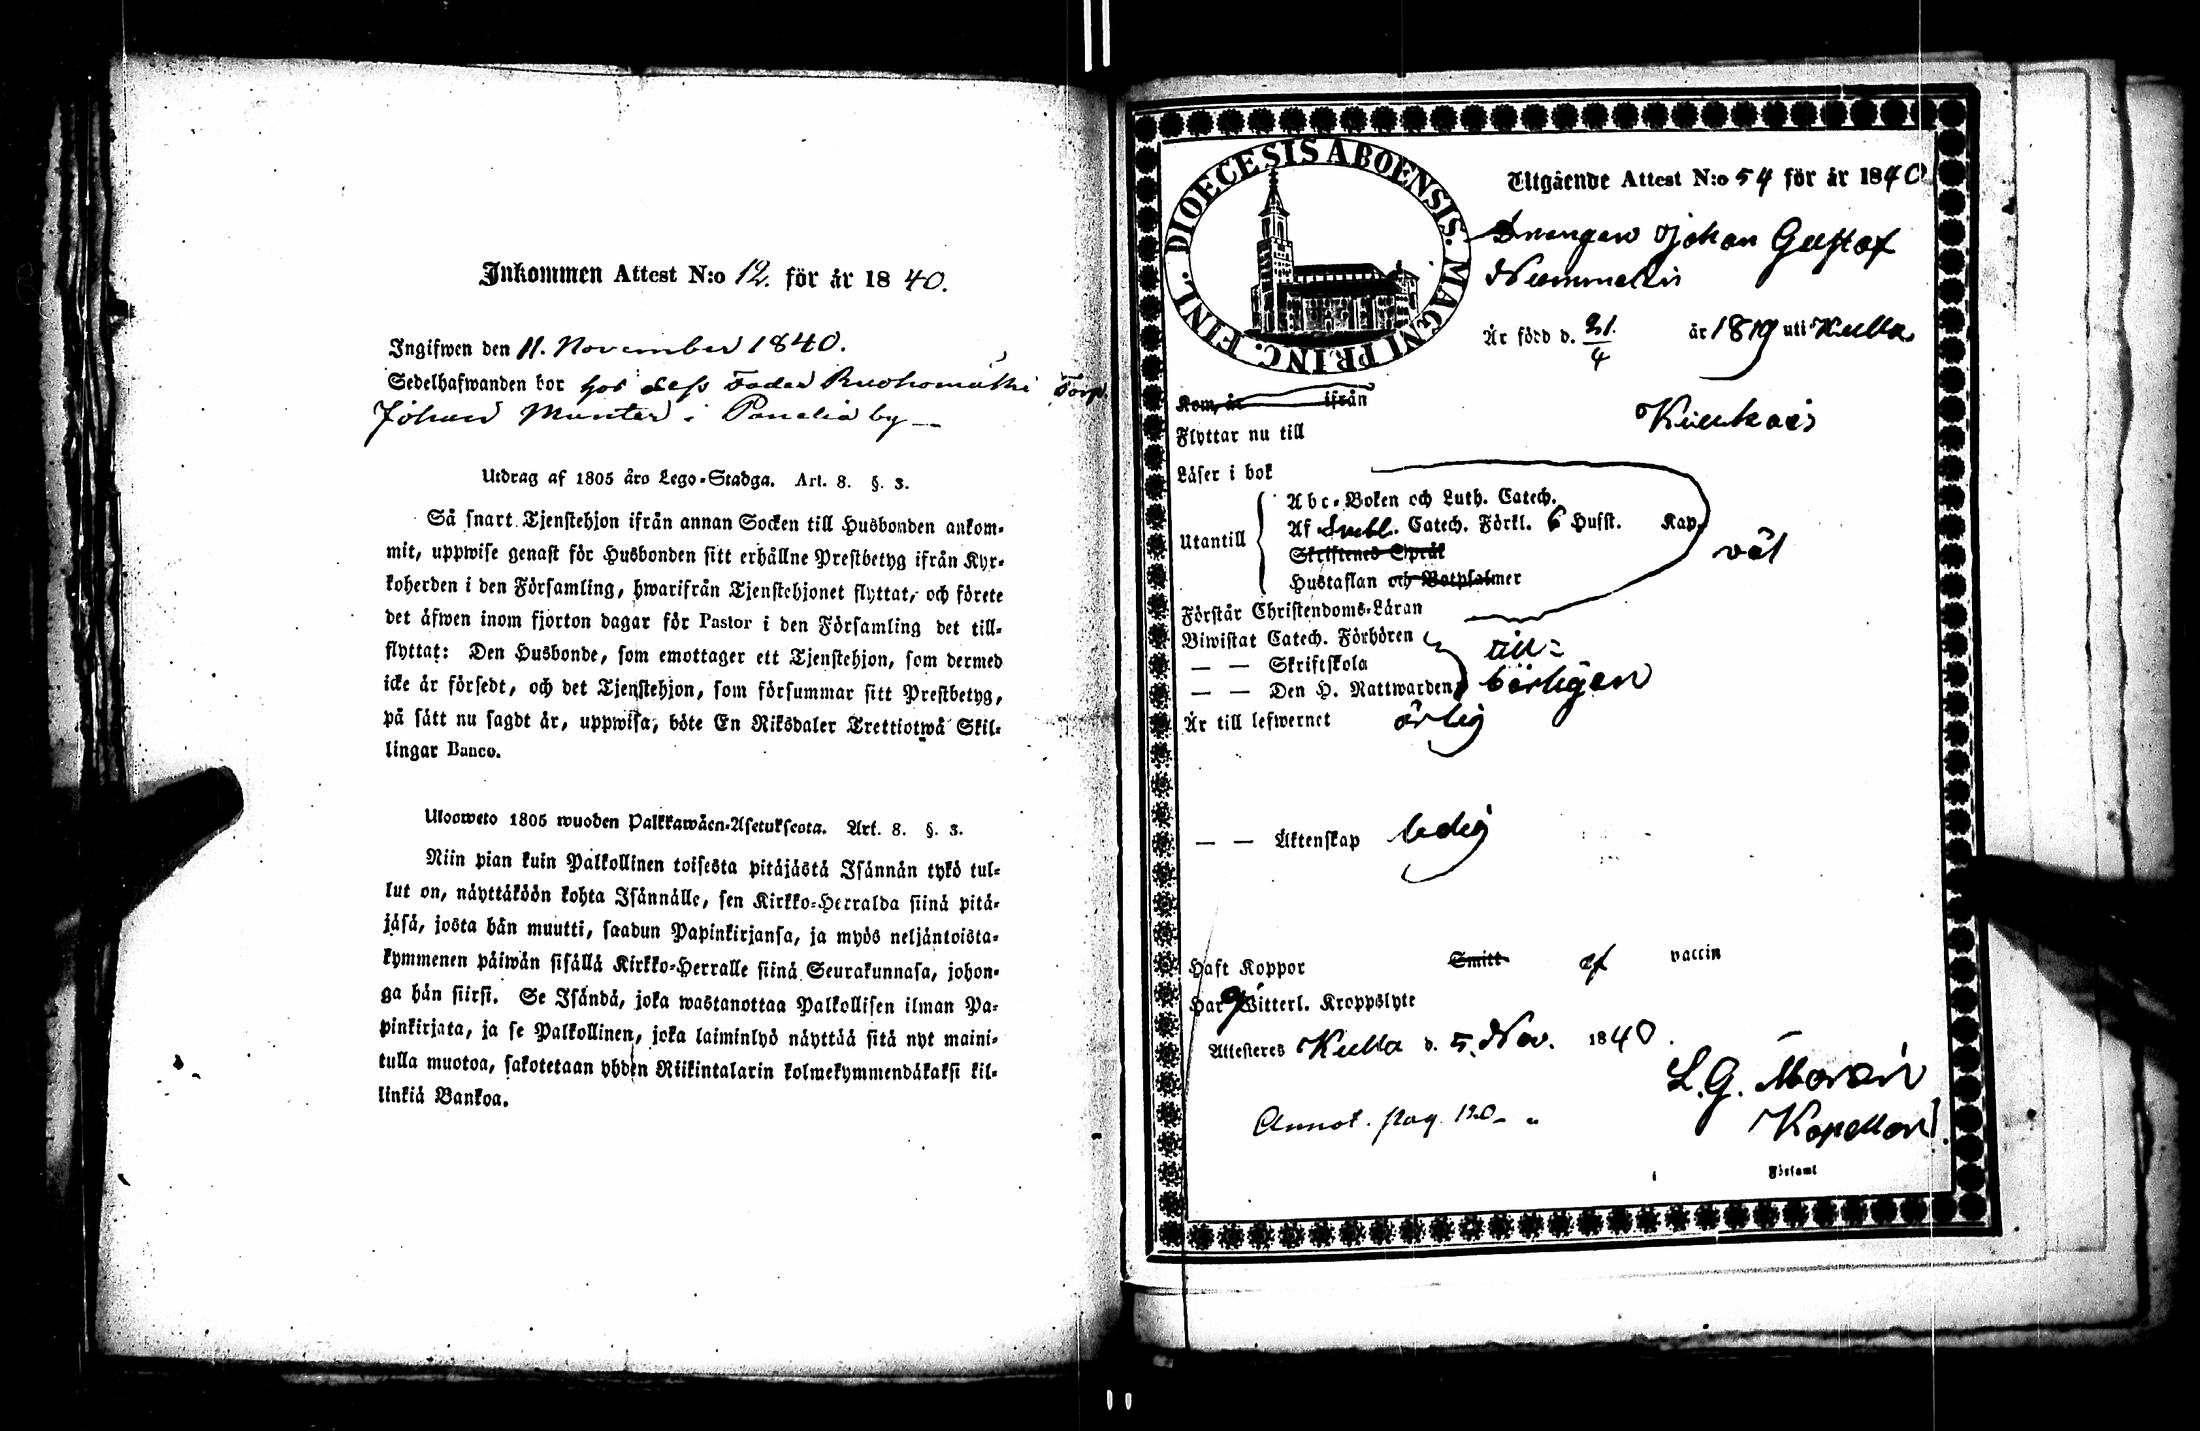 Inkommen Attest N:o 12. för år 1840.
Ingifwen den 11. November 1840.
Sedelhafwanden bor hos dess Fader Ruohomäki Torp.
Johan Munter i Panelia by
Utdrag af 1805 åro Lego-Stadga. Art. 8. §. 3.
Så snart Tjenstehjon ifrån annan Socken till Husbonden ankom-
mit, uppwise genast för Husbonden sitt erhållne Prestbetyg ifrån Kyr-
koherden i den Församling, hwarifrån Tjenstehjonet flyttat, och förete
det äfwen inom fjorton dagar för Pastor i den Församling det till-
flyttat: Den Husbonde, som emottager ett Tjenstehjon, som dermed
icke är försedt, och det Tjenstehjon, som försummar sitt Prestbetyg,
på sätt nu sagdt är, uppwisa, böte En Riksdaler Trettiotwå Skil-
lingar Banco.
Uloosweto 1805 wuoden Palkkawäen-Asetuksesta. Art. 8. §. 3.
Niin pian kuin Palkollinen toisesta pitäjästä Isännän tykö tul-
lut on, näyttäköön kohta Isännälle, sen Kirkko-Herralda siinä pitä-
jäsä, josta hän muutti, saadun Papinkirjansa, ja myös neljäntoista-
kymmenen päiwän sisällä Kirkko-Herralle siinä Seurakunnasa, johon-
ga hän siirsi. Se Isändä, joka wastanottaa Palkollisen ilman Pa-
pinkirjata, ja se Palkollinen, joka laiminlyö näyttää sitä nyt maini-
tulla muotoa, sakotetaan yhden Riikintalarin kolmekymmendäkaksi kil-
linkiä Bankoa.
DIOECESIS ABOENSIS. MAGNI PRINC. FINL.
Utgående Attest N:o 54 för år 1840
Drängen Johan Gustaf
Nummelin
Är född d. 21/4 år 1819 uti Kulla
Kom, år ifrån
Flyttar nu till Kiukais
Läser i bok
Utantill
Abc-Boken och Luth. Catech.
Af Catech. Förkl. 6 Hufst. Kap.
Skriftenes Språk
väl
Hustaflan och Botpsalmer
Förstår Christendoms-Läran
Biwistat Catech. Förhören
— — Skriftskola
— — Den H. Nattwarden
till-
börligen
Är till lefwernet ärlig
— — Äktenskap ledig
Haft Koppor Smitt af vaccin
Har ej Witterl. Kroppslyte
Attesteres Kulla d. 5. Nov. 1840.
L. G. Morén
Kapellan
Annot. pag. 120
Församl